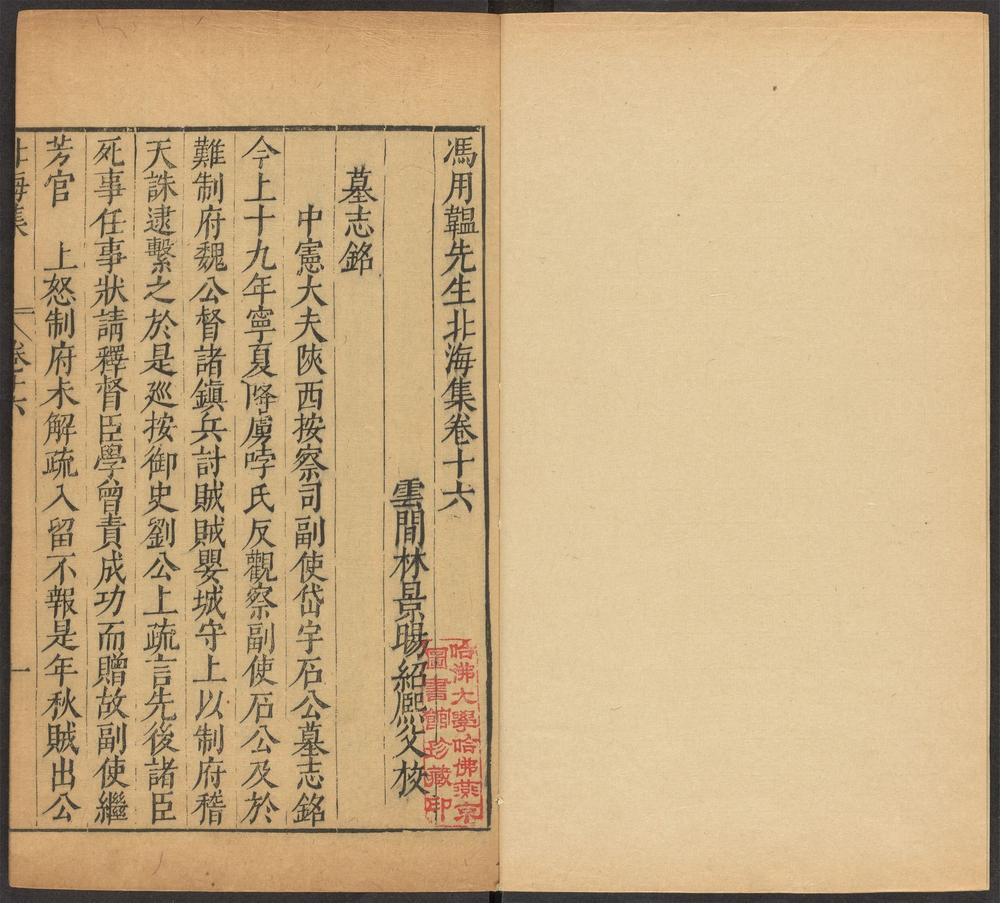 馮用韞先生北海集卷十六
雲間林景暘紹熈父校
墓志銘
中憲大夫陝西按察司副使岱宇石公墓志銘
今上十九年寧夏降虜哱氏反觀察副使石公及於
難制府魏公督諸鎮兵討賊賊嬰城守上以制府稽
天誅逮繫之於是廵按御史劉公上疏言先後諸臣
死事任事狀請釋督臣學曾責成功而贈故副使繼
芳官　上怒制府未解疏入留不報是年秋賊出公
北海集　卷十六　一
哈佛大學哈佛燕京
圖書館珍藏印